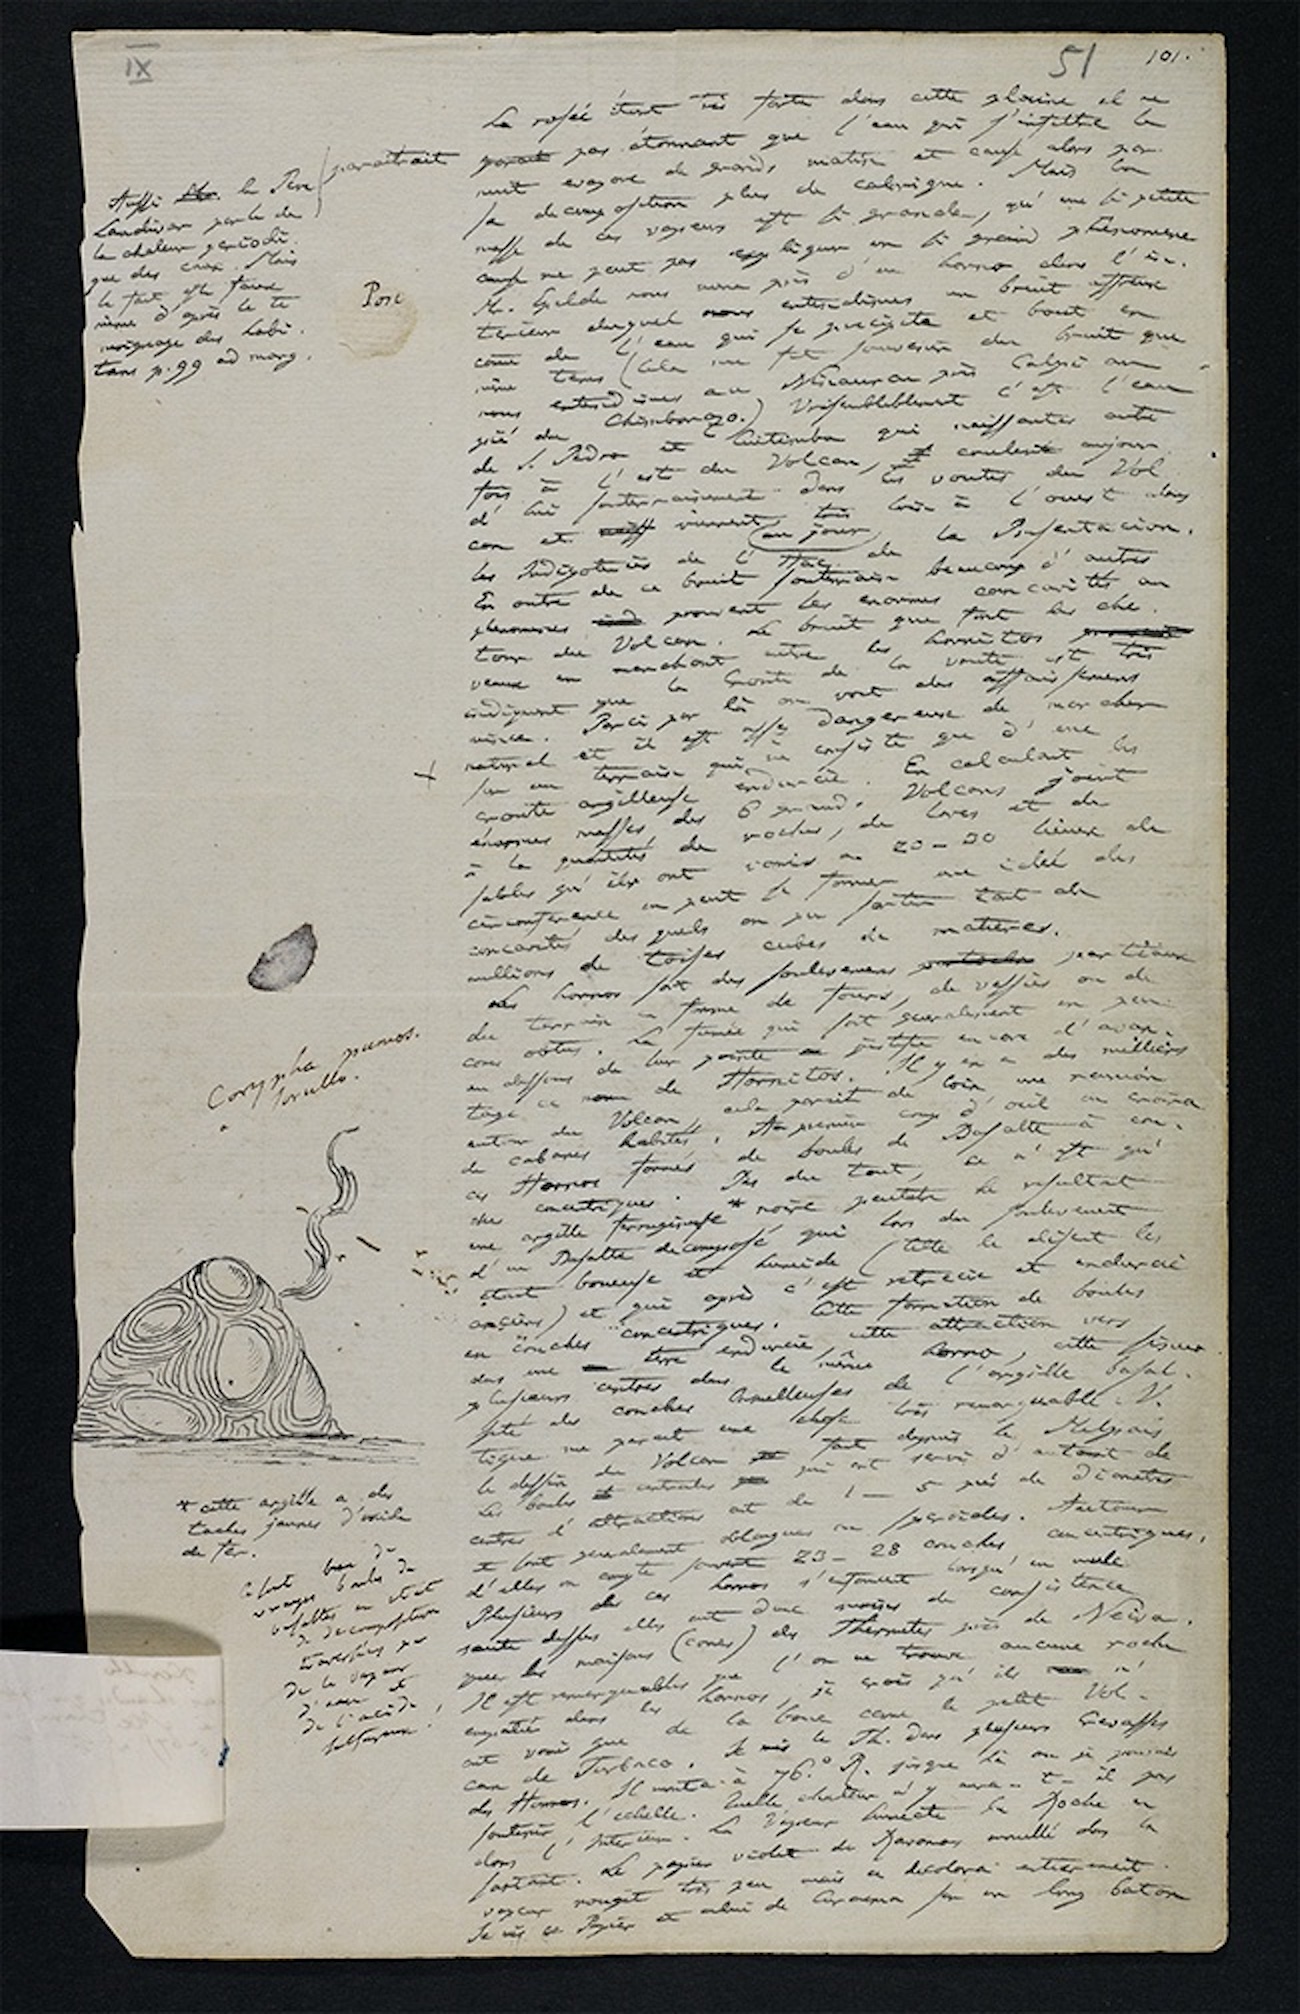 XI
51
101.
La rosée étant très forte dans cette plaine il ne
paraitrait
parait pas étonnant que l'eau qui s'infiltre la
nuit evapore de grands matin et cause alors par
sa decomposition plus de calorique. Mais la
masse de ces vapeurs est si grande, qu'une si petite
cause ne peut pas expliquer un si grand phénomène
M. Gelde nous mena près d'un horno dans l'in-
terieur duquel nous entendimes un bruit affreux
come de l'eau qui se precipite et bout en
même tems (Cela me fit souvenir du bruit que
nous entendimes au près Calpi au
pié du Chimborazo.) Vraisemblablement c'est l'eau
de S. Pedro et Cuitimba qui naissantes autre
fois à l'est du Volcan, coulent aujour
d'hui souterrainement dans les voutes du Vol
can et viennent au jour très loin à l'ouest dans
les Indigoteries de l'Hac. de la Presentacion.
En outre de ce bruit souterrain beaucoup d'autres
phenomenes prouvent les enormes concavités au
tour du Volcan. Le bruit que font les che-
vaux en marchant entre les hornitos
indiquent que la croute de la voute est très
mince. Parci par là on voit des affaissemens
naturel et il est assez dangereux de marcher
sur un terrain qui ne consiste que d'une
croute argilleuse endurcie. En calculant les
énormes masses des 6 grands Volcans joint
à la quantité de roches, de laves et de
sables qu'ils ont vomis a 20-30 lieues de
circonference on peut se former une idée des
concavités des quels on pu sortir tant de
millions de toises cubes de matieres.
Les hornos sont des soulevemens partiaux
du terrain en forme de fours, de vessies ou de
cones obtus. La fumée qui sort generalement un peu
en dessous de leur pointe justifie encore d'avan-
tage ce nom de Hornitos. Il y en a des milliers
autour du Volcan, cela parait de loin une reunion
de cabanes habités. Au premier coup d'oeil on croira
ces Hornos formés de boules de Basalte à cou-
ches concentriques. Pas du tout, ce n'est qu'
une argille ferrugineuse * noire peutetre le resultat
d'un Basalte decomposé qui lors du soulevement
étant boueuse et humide (telle le disent les
anciens) et qui après c'est retrecie et endurcie
en couches concentriques. Cette formation de boules
dans une terre endurcie, cette attraction vers
plusieurs centres dans le même horno, cette
des couches mamelleuses de l'argille basal-
tique me parait une chose très remarquable. V.
le dessin du Volcan fait depuis le Malpais
Les boules centrales qui ont servi d'autant de
centres d'attractions ont de 1 — 5 piés de Diametre
sont generalement oblongues ou speroides. Autour
d'elles on compte souvent 23 - 28 couches concentriques.
Plusieurs de ces hornos s'enfoncent lorsqu'un mule
saute dessus elles ont donc moins de consistence
que les maisons (cones) des Thermites près de Neiva.
Il est remarquables que l'on ne trouve aucune roche
empatée dans les hornos, je crois qu'ils n'
ont vomi que de la boue come le petit Vol-
can de Turbaco. Je mis le Th. dans plusieurs Crevasses
des Hornos. Il monta à 76.° R. jusque là où je pouvais
soutenir l'echelle. Quelle chaleur n'y aura-t-il pas
dans l'interieur. La Vapeur humecte la Roche en
sortant. Le papier violet de Ravenos mouillé dans la
vapeur rougit très peu mais se decolora entierement.
Je mis ce Papier et celui de Curcuma sur un long baton
Aussi le Père
Landivar parle de
la chaleur periodi-
que des eaux. Mais
le fait est faux
même d'après le te
moignage des habi-
tans p. 99 ad marg.
Pose
Corypha pumos.
Jorullo.
* cette argille a des
taches jaunes d'oxide
de fer.
Ce sont bien de
vraies boules de
basaltes en etat
de decomposition
traversées par
de la vapeur
d'eau et
de l'acide
sulfureux!